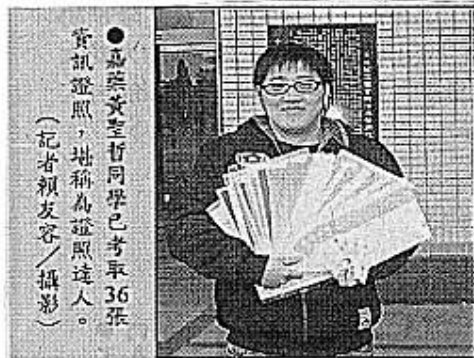 ●嘉藥黃聖哲同學已考取36張
資訊證照，堪稱為證照達人。
（記者賴友容／攝影）